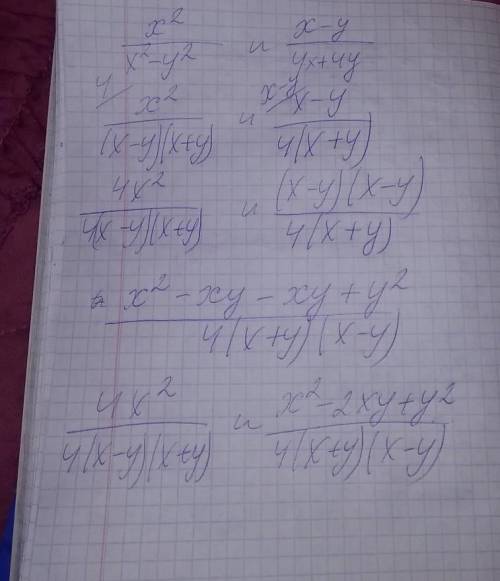 x²/(x²-y²) и (x-y)/(4x+4y)
4/ x²/((x-y)(x+y)) и x-y/ (x-y)/(4(x+y))
4x²/(4(x-y)(x+y)) и (x-y)(x-y)/(4(x+y))
(x²-xy-xy+y²)/(4(x+y)(x-y))
4x²/(4(x-y)(x+y)) и (x²-2xy+y²)/(4(x+y)(x-y))